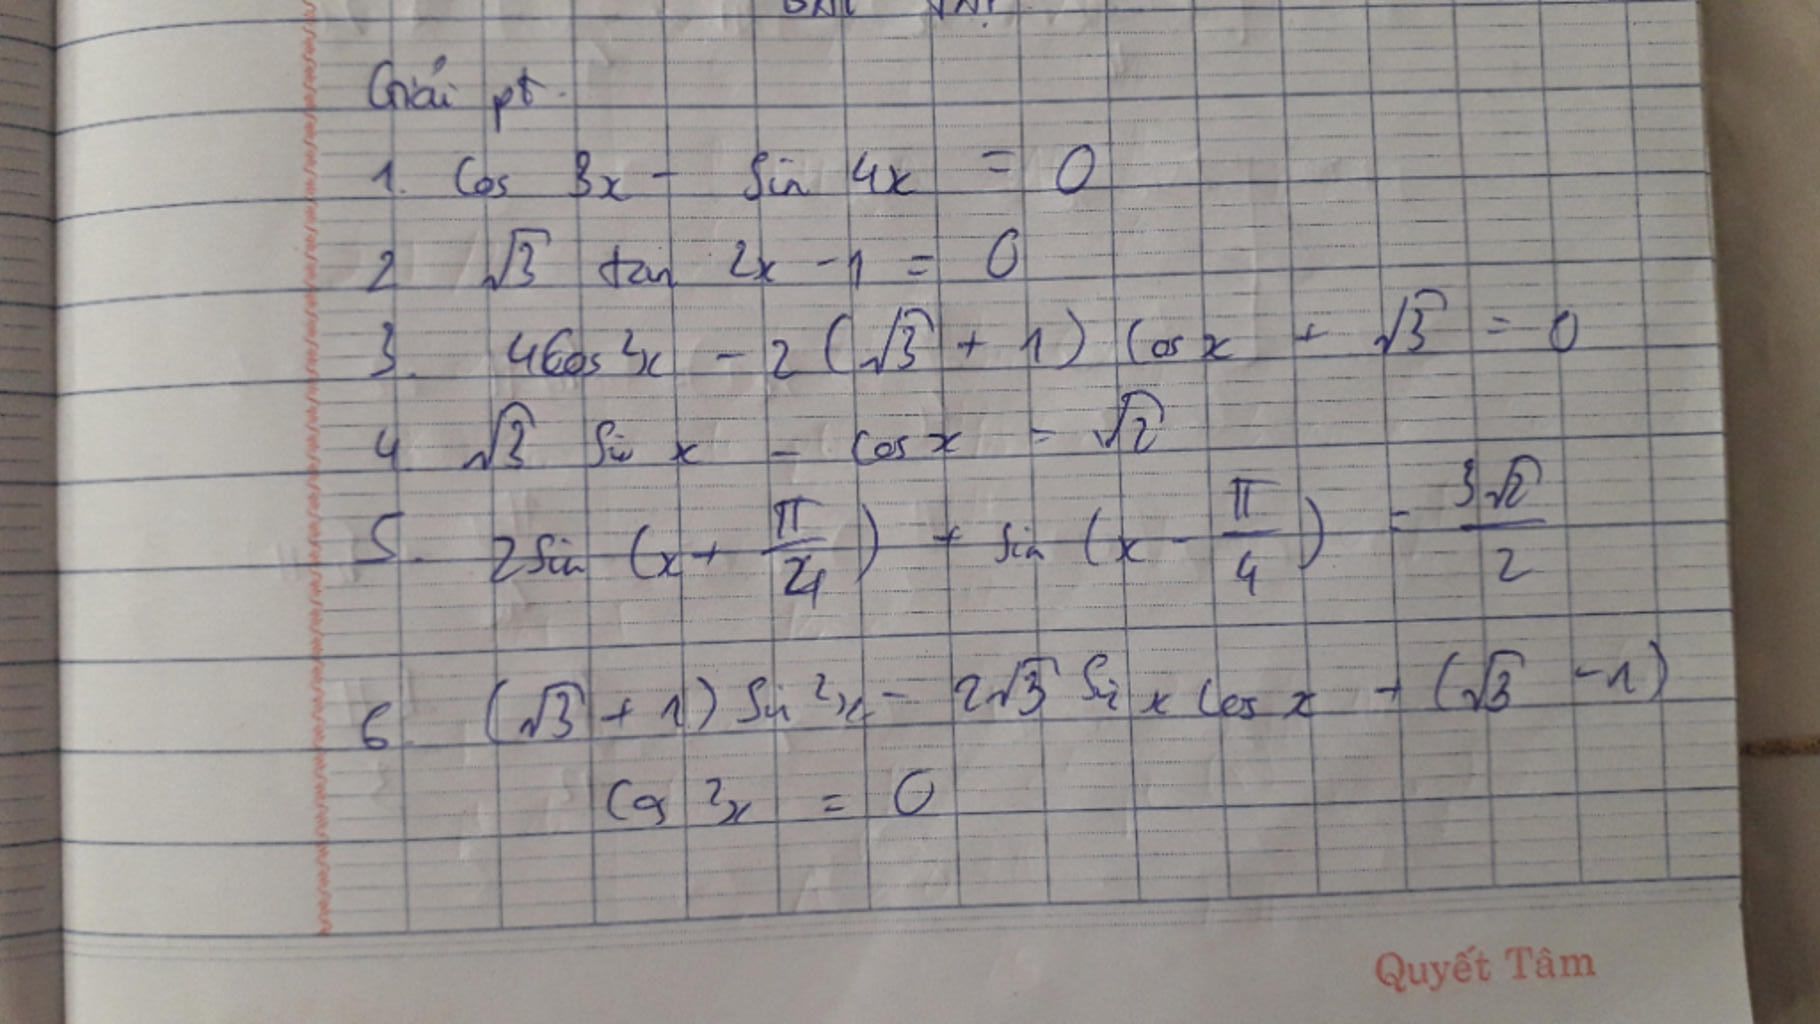 BÀI TẬP
Giải pt.
1. Cos 3x - Sin 4x = 0
2 √3 tan 2x - 1 = 0
3. 4Cos²x - 2 (√3 + 1) Cos x + √3 = 0
4 √3 Si x - Cos x = √2
5. 2Sin (x + π/4) + Sin (x - π/4) = 3√2/2
6. (√3 + 1) Si ²x - 2√3 Si x Cos x + (√3 - 1)
Cos ²x = 0
Quyết Tâm